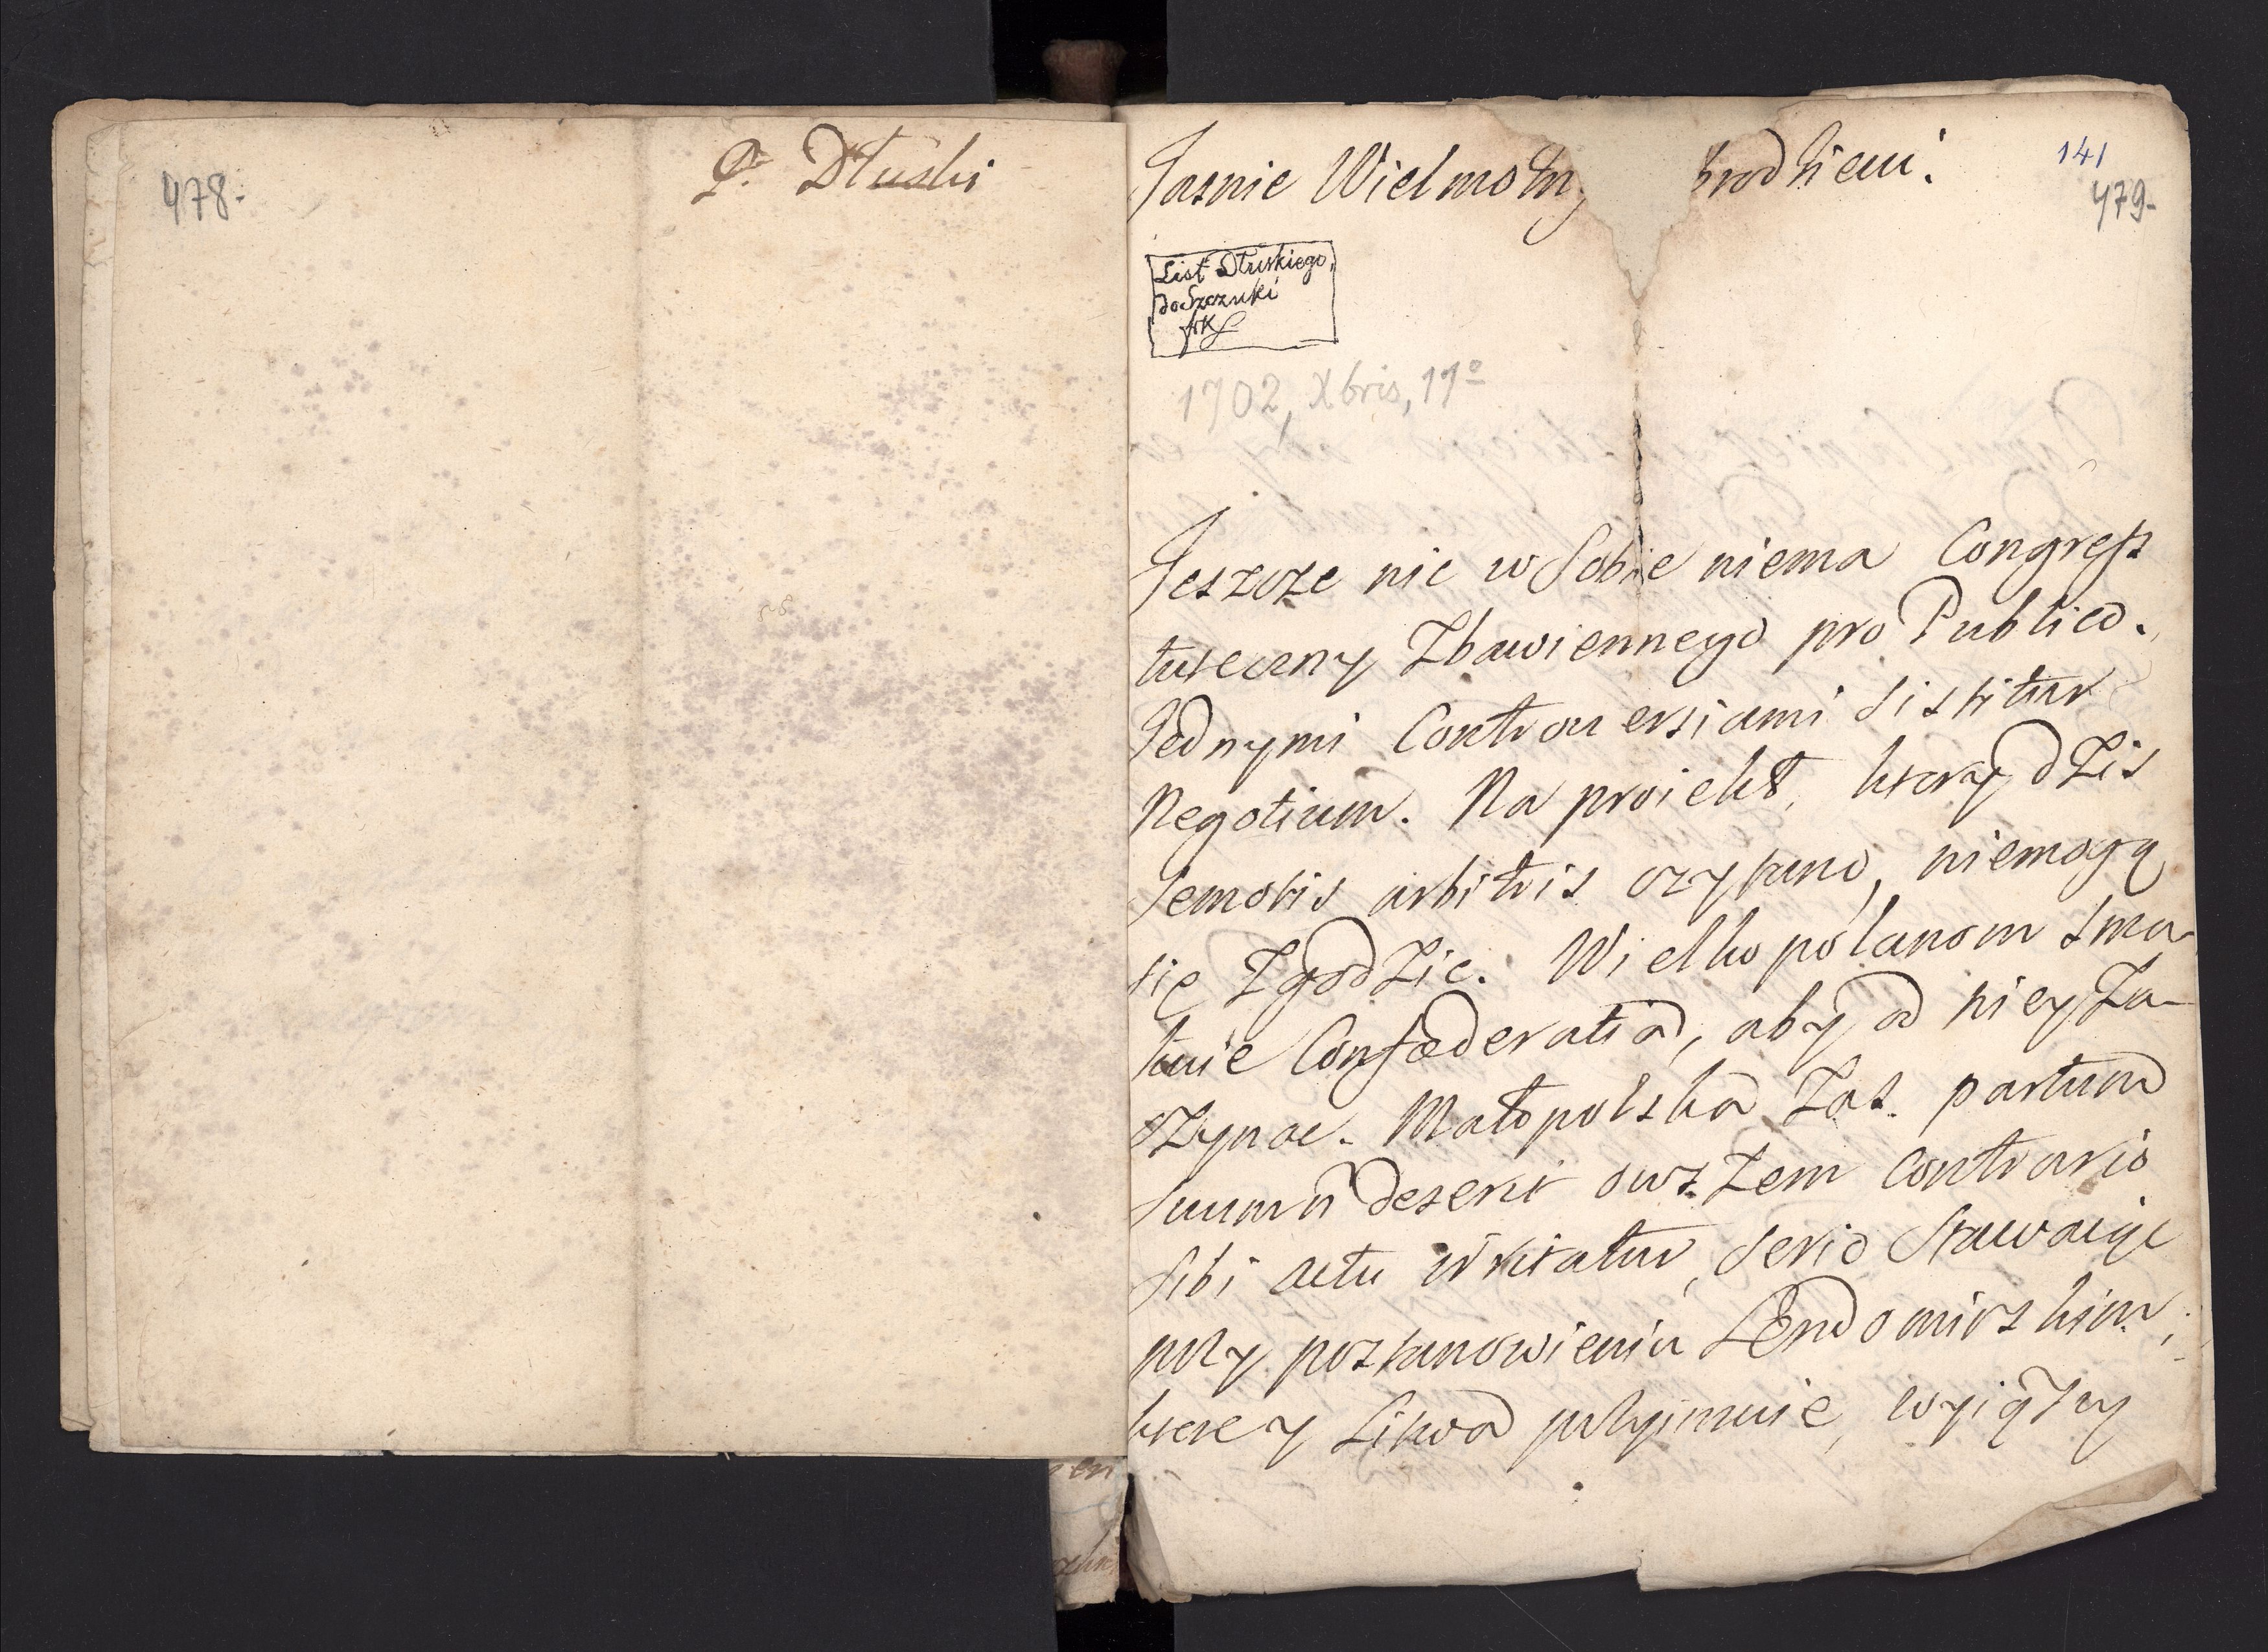 478.
P. Dłuski
141
479-
Jasnie Wielmożny brodzieiu!
List Dłuskiego
do Szczuki
1702, Xbris, 11º
Jeszcze nic w Sobie niema Congress
tuteczny Zbawiennego pro Publico.
Jednymi Controuersiami sistitur
Negotium. Na proiekt, ktory dzis
Semotis arbitris czytano, niemogą
się Zgodzic. Wielkopolanom sma-
kuie Confæderatia, aby od niey Za-
czynac. Małopolska Zas. partum
suum n deserit owszem contrario
sibi actu irritatur, serio stawaiąc
przy postanowieniu Sendomirskim,
ktore y Litwa przyimuie, wyiąwszy